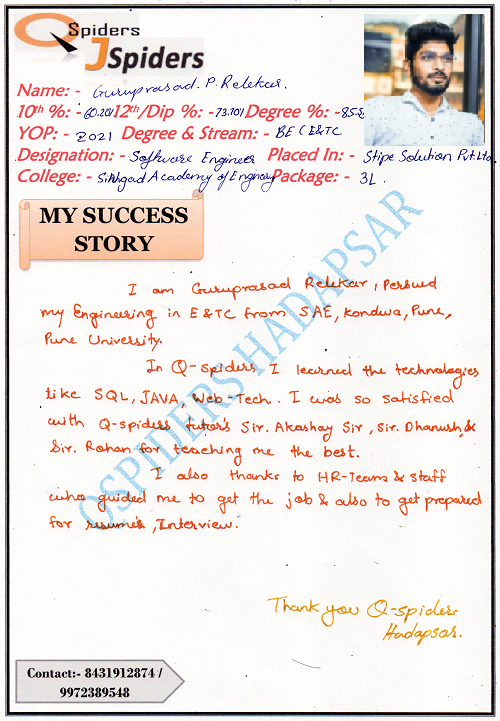 Q Spiders
JSpiders
Name: - Guruprasad. P. Relekar.
10th %: - 60.20% 12th/Dip %: - 73.70% Degree %: - 85.5
YOP: - 2021 Degree & Stream: - BE ( E&TC
Designation: - Software Engineer Placed In: - Stipe Solution Pvt.Ltd.
College: - Sinhgad Academy of Enginery Package: - 3L.
MY SUCCESS
STORY
I am Guruprasad Relekar, Persued
my Engineering in E&TC from SAE, Kondwa, Pune,
Pune University.
In Q-spiders, I learned the technologies
like SQL, JAVA, Web-Tech. I was so satisfied
with Q-spiders tutor's Sir. Akashay Sir, Sir. Dhanush, &
Sir. Rohan for teaching me the best.
I also thanks to HR-Teams & staff
who guided me to get the job & also to get prepared
for resume's, Interview.
QSPIDERS HADAPSAR
Thank you Q-spiders
Hadapsar.
Contact:- 8431912874 /
9972389548